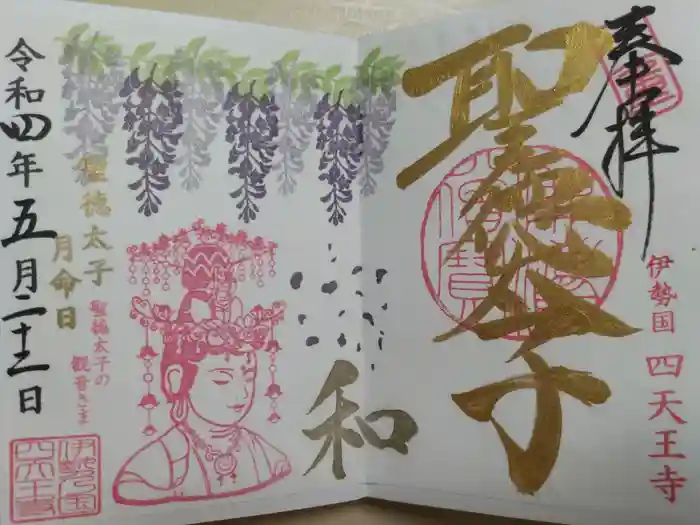 奉拝
聖徳太子
伊勢国 四天王寺
和
聖徳太子
月命日
聖徳太子の
観音さま
令和四年五月二十二日
伊勢国
四天王寺